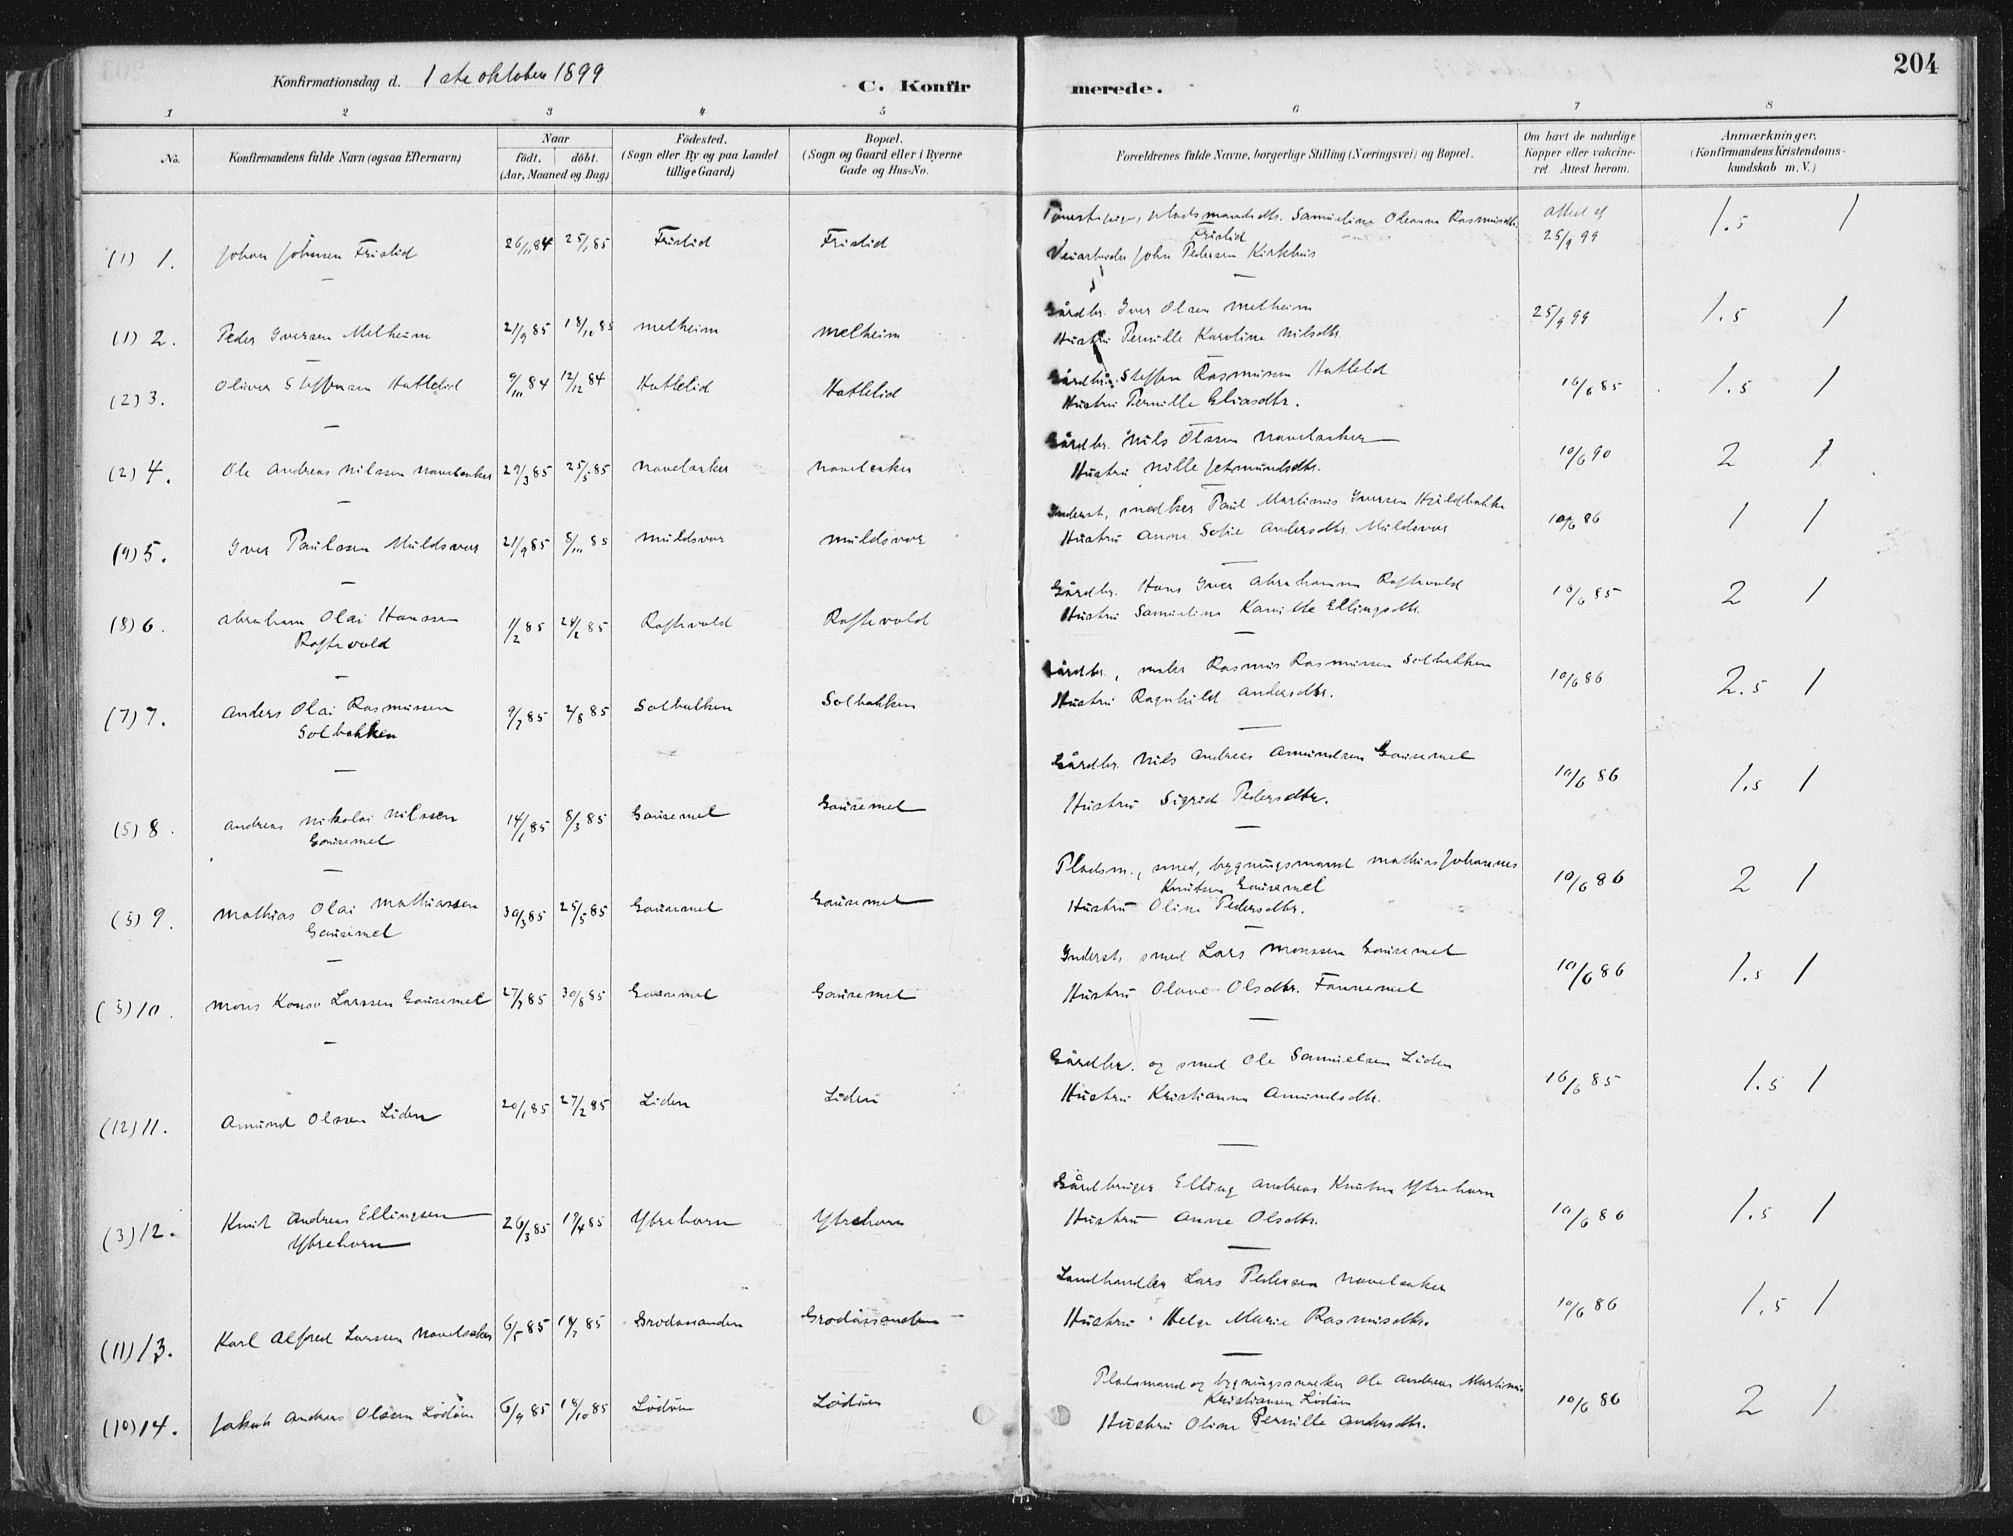 Konfirmationsdag d. 1ste oktober 1899
C. Konfirmerede.
204
1 2 3 4 5 6 7 8
No.
Konfirmandens fulde Navn (ogsaa Efternavn)
Naar
födt. döbt.
(Aar, Maaned og Dag)
Födested.
(Sogn eller By og paa Landet
tillige Gaard)
Bopæl.
(Sogn og Gaard eller i Byerne
Gade og Hus-No.
Forældrenes fulde Navne, borgerlige Stilling (Næringsvei) og Bopæl.
Om havt de naturlige
Kopper eller vakcine-
ret. Attest herom.
Anmærkninger.
(Konfirmandens Kristendoms-
kundskab m. V.)
(1) 1. Johan Johnsen Frislid 26/11 84 25/1 85 Frislid Frislid
Tjenestepige, pladsmandsdtr. Samueline Oleanna Rasmusdtr.
Frislid
Veiarbeider John Pedersen Kirkhus
attest af
25/9 99 1.5 1
(1) 2. Peder Iversen Melheim 21/9 85 18/10 85 Melheim Melheim
Gårdbr. Iver Olsen Melheim
Hustru Pernille Karoline Nilsdtr.
25/9 99 1.5 1
(2) 3. Oliver Steffensen Hatlelid 9/11 84 12/12 84 Hatlelid Hatlelid
Gårdbr. Steffen Rasmussen Hatlelid
Hustru Pernille Eliasdtr.
16/6 85 1.5 1
(2) 4. Ole Andreas Nilssen Navelsaker 29/3 85 25/5 85 Navelsaker Navelsaker
Gårdbr. Nils Olssen Navelsaker
Hustru Nille Jetmundsdtr.
10/6 90 2 1
(9) 5. Iver Paulssen Muldsvor 21/9 85 8/11 85 Muldsvor Muldsvor
Inderst, snedker Paul Martinus Iversen Hjeldbakke
Hustru Anne Sofie Andersdtr. Muldsvor
10/6 86 1 1
(8) 6. Abraham Olai Hanssen
Raftevold 1/2 85 24/2 85 Raftevold Raftevold
Gårdbr. Hans Iver Abrahamsen Raftevold
Hustru Samueline Kamille Ellingsdtr.
16/6 85 2 1
(7) 7. Anders Olai Rasmussen
Solbakken 9/7 85 2/8 85 Solbakken Solbakken
Gårdbr., maler Rasmus Rasmussen Solbakken
Hustru Ragnhild Andersdtr.
10/6 86 2.5 1
(5) 8. Andreas Nikolai Nilssen
Gausemel 14/1 85 8/3 85 Gausemel Gausemel
Gårdbr. Nils Andreas Amundsen Gausemel
Hustru Sigrid Pedersdtr.
10/6 86 1.5 1
(5) 9. Mathias Olai Mathiassen
Gausemel 30/3 85 25/5 85 Gausemel Gausemel
Pladsm., smed, bygningsmand Mathias Johannes
Knutsen Gausemel
Hustru Oline Pedersdtr.
10/6 86 2 1
(5) 10. Mons Konov Larssen Gausemel 27/7 85 30/8 85 Gausemel Gausemel
Inderst, smed Lars Monssen Gausemel
Hustru Olave Olsdtr. Fannemel
10/6 86 1.5 1
(12) 11. Amund Olssen Liden 20/1 85 27/2 85 Liden Liden
Gårdbr. og smed Ole Samuelsen Liden
Hustru Kristianna Amundsdtr.
16/6 85 1.5 1
(3) 12. Knut Andreas Ellingsen
Ytrehorn 26/3 85 19/4 85 Ytrehorn Ytrehorn
Gårdbruger Elling Andreas Knutsen Ytrehorn
Hustru Anne Olsdtr.
10/6 86 1.5 1
(11) 13. Karl Alfred Larssen Navelsaker 6/5 85 19/7 85 Grodåssanden Grodåssanden
Landhandler Lars Pedersen Navelsaker
Hustru Helge Marie Rasmusdtr.
10/6 86 1.5 1
(10) 14. Jakob Andreas Olsen Lödöen 6/9 85 18/10 85 Lödöen Lödöen
Pladsmand og bygningssnedker Ole Andreas Martinus
Kristiansen Lödöen
Hustru Oline Pernille Andersdtr.
10/6 86 2 1